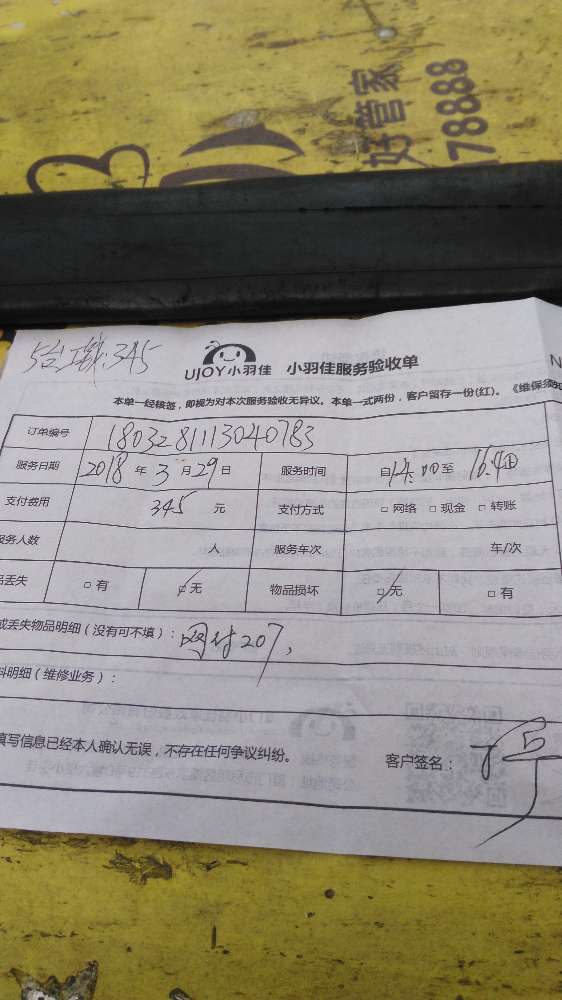 好管家
78888
5台 345
UJOY小羽佳 小羽佳服务验收单
本单一经核签，即视为对本次服务验收无异议。本单一式两份，客户留存一份(红)。《维保须
订单编号 1803281113040783
服务日期 2018 年 3 月 29 日 服务时间 自 14:00 至 16:40
支付费用 345 元 支付方式 □ 网络 □ 现金 □ 转账
服务人数 人 服务车次 车/次
品丢失 □ 有 □ 无 物品损坏 □ 无 □ 有
或丢失物品明细（没有可不填）：网付207，
料明细（维修业务）：
填写信息已经本人确认无误，不存在任何争议纠纷。 客户签名：